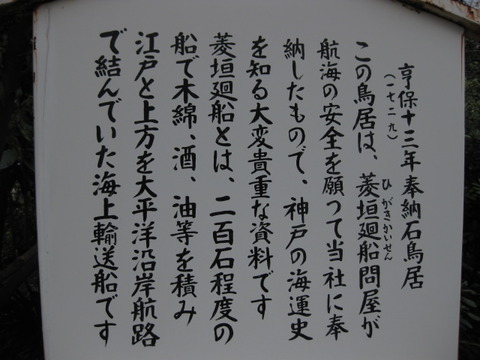 享保十三年奉納石鳥居
(一七二九)
この鳥居は、菱垣廻船問屋が
ひがきかいせん
航海の安全を願つて当社に奉
納したもので、神戸の海運史
を知る大変貴重な資料です
菱垣廻船とは、二百石程度の
船で木綿、酒、油等を積み
江戸と上方を大平洋沿岸航路
で結んでいた海上輸送船です